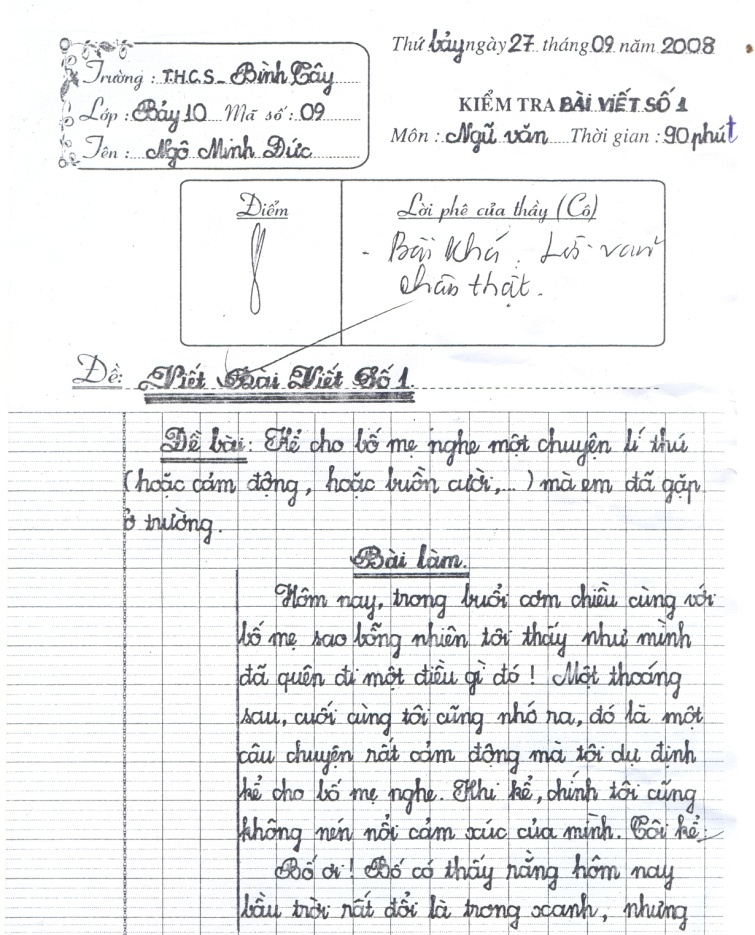 Thứ bảy ngày 27 tháng 09 năm 2008
Trường : T.H.C.S_ Bình Tây
Lớp : Bảy 10 Mã số : 09
Tên : Ngô Minh Đức
KIỂM TRA BÀI VIẾT SỐ 1
Môn : Ngữ văn Thời gian : 90 phút
Điểm
Lời phê của thầy (Cô)
8
- Bài khá. Lời văn
chân thật.
Đề: Viết Bài Viết Số 1.
Đề bài: Kể cho bố mẹ nghe một chuyện lí thú
(hoặc cảm động, hoặc buồn cười,...) mà em đã gặp
ở trường.
Bài làm.
Hôm nay, trong buổi cơm chiều cùng với
bố mẹ sao bỗng nhiên tôi thấy như mình
đã quên đi một điều gì đó ! Một thoáng
sau, cuối cùng tôi cũng nhớ ra, đó là một
câu chuyện rất cảm động mà tôi dự định
kể cho bố mẹ nghe. Khi kể, chính tôi cũng
không nén nổi cảm xúc của mình. Tôi kể:
Bố ơi ! Bố có thấy rằng hôm nay
bầu trời rất đổi là trong xanh, nhưng